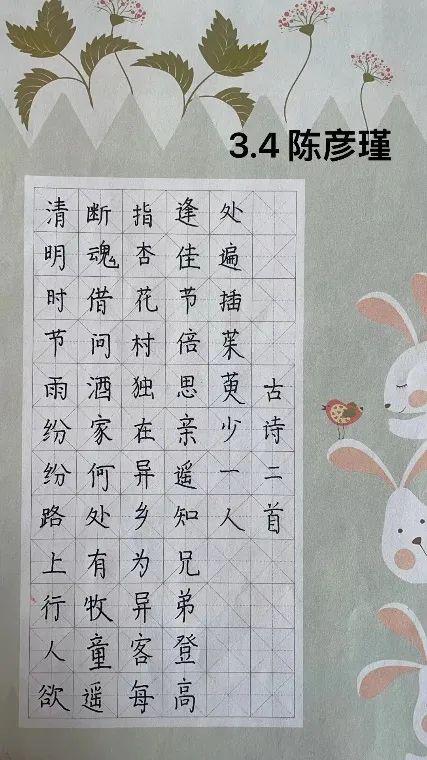 3.4 陈彦瑾
清明时节雨纷纷路上行人欲
断魂借问酒家何处有牧童遥
指杏花村独在异乡为异客每
逢佳节倍思亲遥知兄弟登高
处遍插茱萸少一人
古诗二首